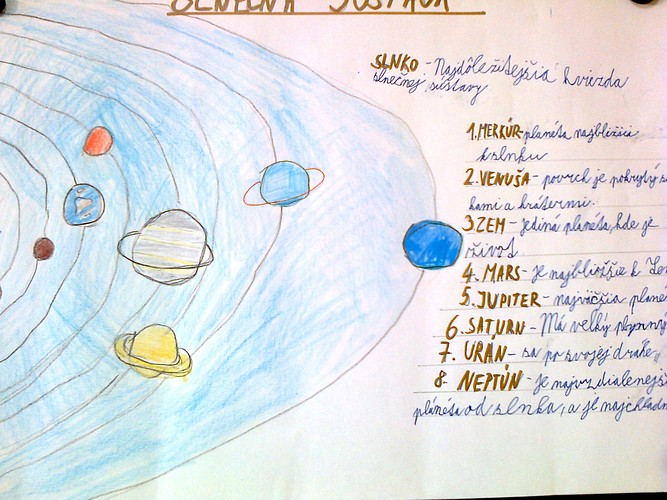 SLNEČNÁ SÚSTAVA
SLNKO - Najdôležitejšia hviezda
slnečnej sústavy
1. MERKÚR - planéta najbližšie
k slnku
2. VENUŠA - povrch je pokrytý
kami a krátermi.
3. ZEM - jediná planéta, kde je
život.
4. MARS - je najbližšie k
5. JUPITER - najväčšia
6. SATURN - Má veľký plynný
7. URÁN - sa po svojej dráhe
8. NEPTÚN - je
planéta od slnka, a je